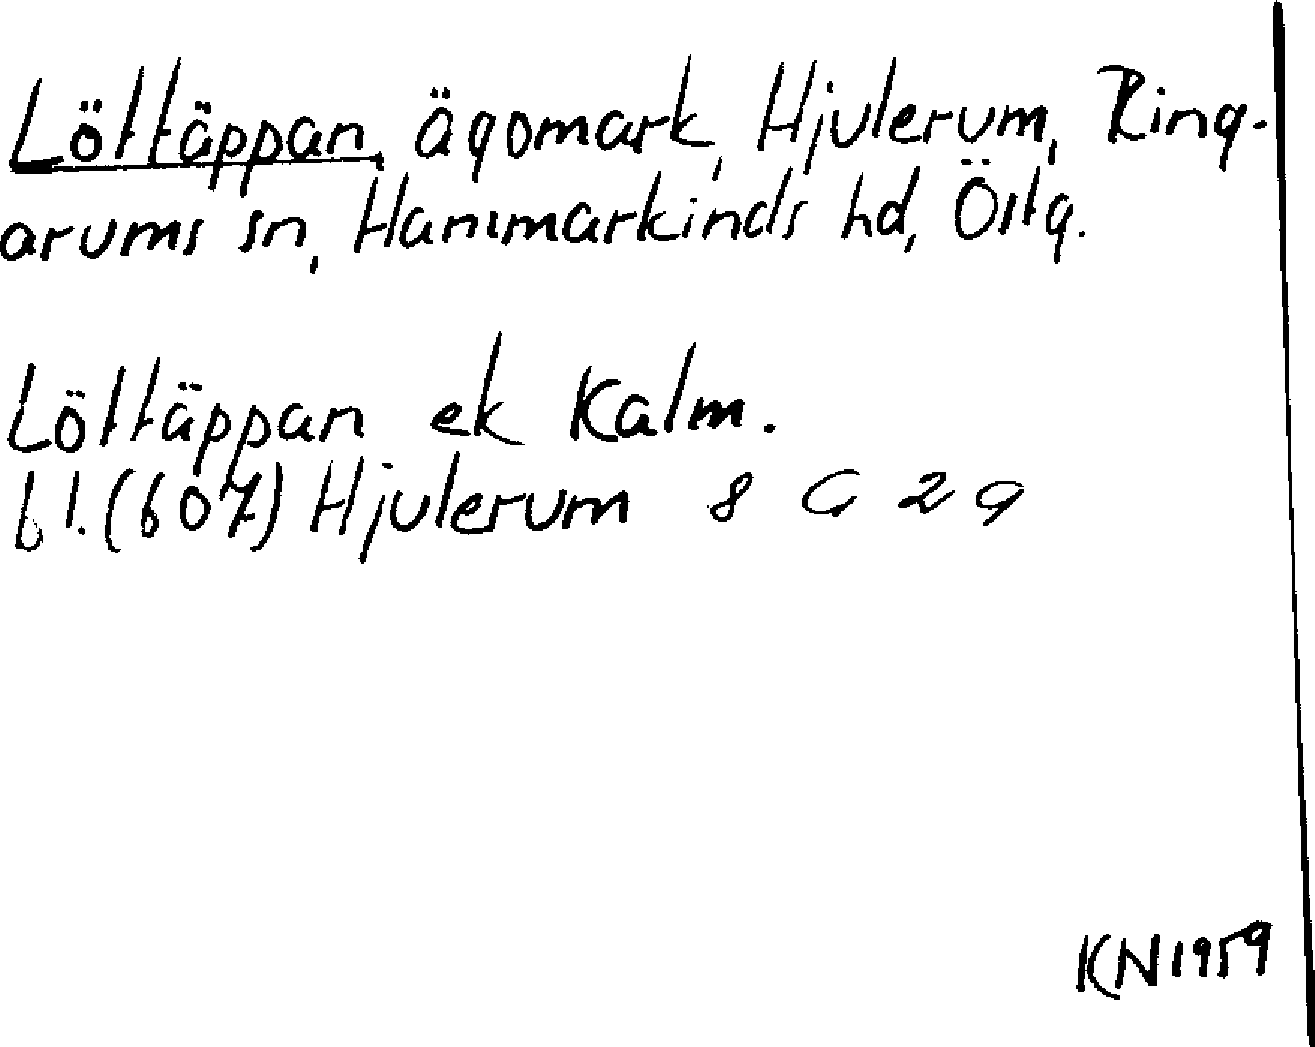 Löttäppan, ägomark, Hjulerum, Ring-
arums sn, Hammarkinds hd, Östg.
Löttäppan ek Kalm.
bl. (607) Hjulerum 8 G 2 a
KN 1959